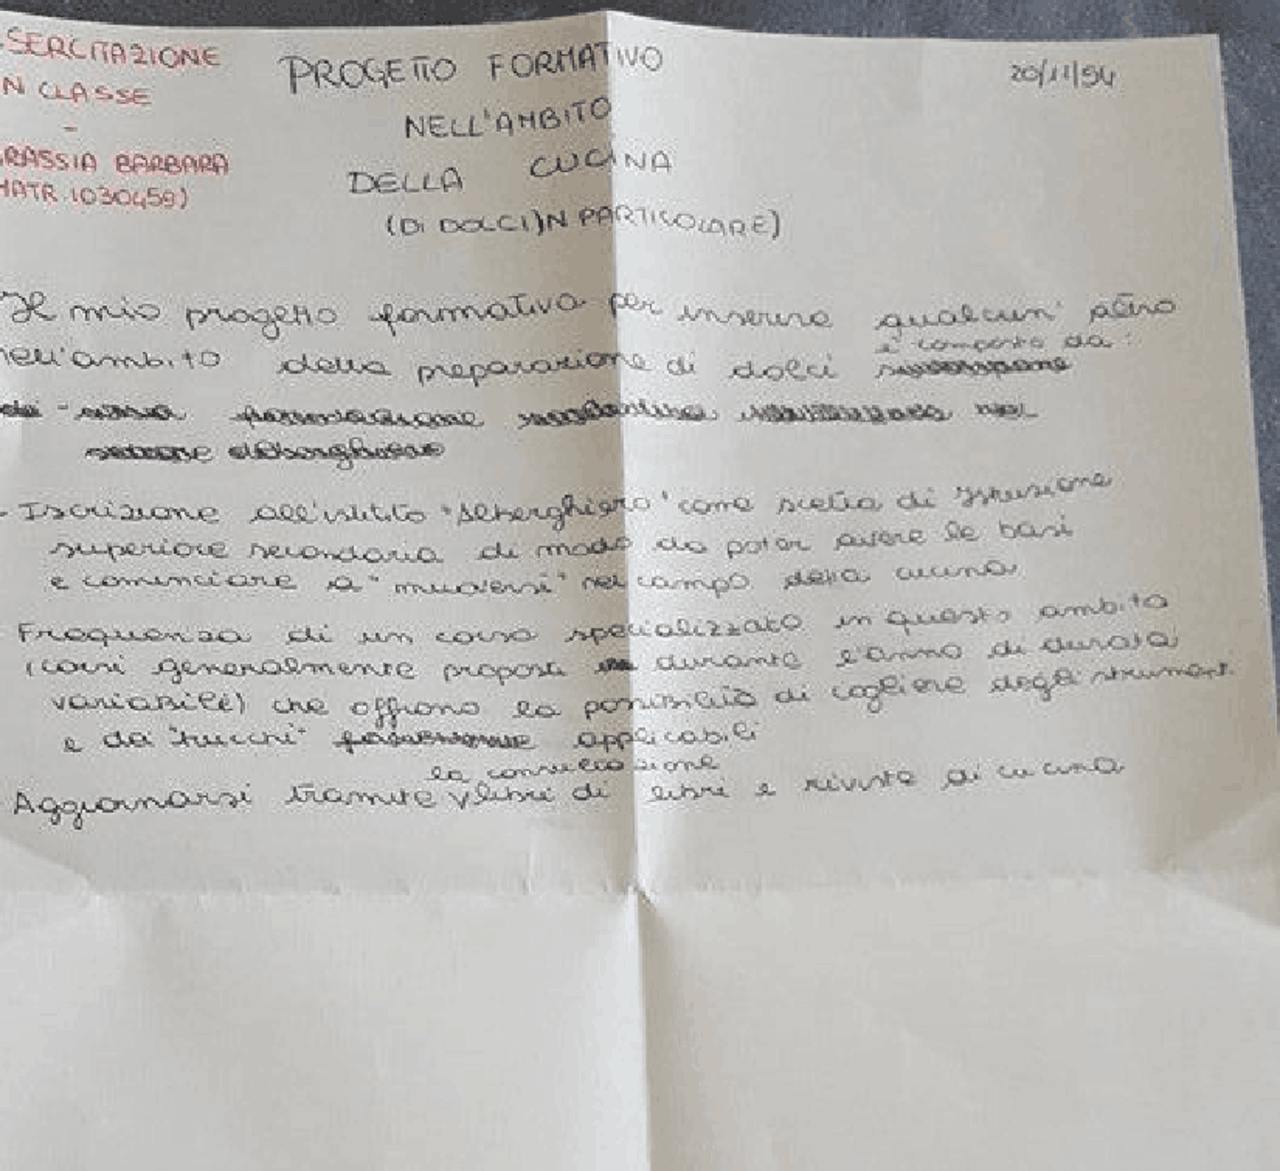 SERCITAZIONE
N CLASSE
-
RASSIA BARBARA
MATR. 1030459)
PROGETTO FORMATIVO
NELL'AMBITO
DELLA CUCINA
(DI DOLCI IN PARTICOLARE)
20/11/94
Il mio progetto formativo per inserire qualcun' altro
è composto da:
nell'ambito della preparazione di dolci
- Iscrizione all'istituto "Alberghiero" come scelta di Istruzione
superiore secondaria di modo da poter avere le basi
e cominciare a "muoversi" nel campo della cucina
Frequenza di un corso specializzato in questo ambito
(corsi generalmente proposti durante l'anno di durata
variabile) che offrono la possibilità di cogliere degli strumenti
e da "trucchi" applicabili
la consultazione
Aggiornarsi tramite di libri e riviste di cucina